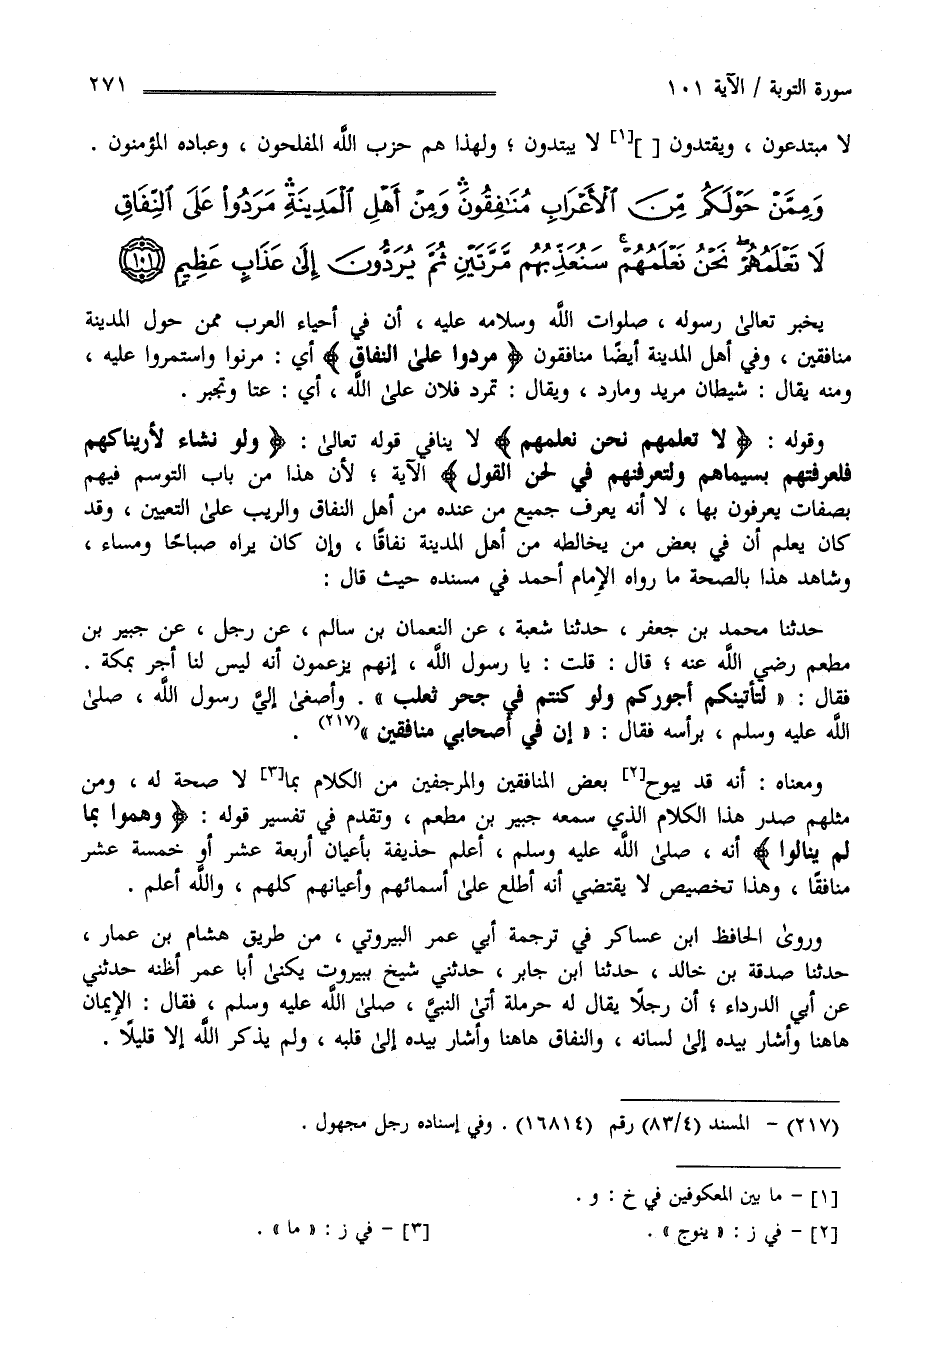 سورة التوبة / الآية ١٠١ ٢٧١
لا مبتدعون ، ويقتدون [ ][١] لا يبتدون ؛ ولهذا هم حزب اللَّه المفلحون ، وعباده المؤمنون .
وَمِمَّنْ حَوْلَكُم مِّنَ ٱلْأَعْرَابِ مُنَٰفِقُونَۖ وَمِنْ أَهْلِ ٱلْمَدِينَةِۖ مَرَدُوا۟ عَلَى ٱلنِّفَاقِ
لَا تَعْلَمُهُمْۖ نَحْنُ نَعْلَمُهُمْۚ سَنُعَذِّبُهُم مَّرَّتَيْنِ ثُمَّ يُرَدُّونَ إِلَىٰ عَذَابٍ عَظِيمٍ ١٠١
يخبر تعالىٰ رسوله ، صلوات اللَّه وسلامه عليه ، أن في أحياء العرب ممن حول المدينة
منافقين ، وفي أهل المدينة أيضًا منافقون ﴿ مردوا علىٰ النفاق ﴾ أي : مرنوا واستمروا عليه ،
ومنه يقال : شيطان مريد ومارد ، ويقال : تمرد فلان علىٰ اللَّه ، أي : عتا وتجبر .
وقوله : ﴿ لا تعلمهم نحن نعلمهم ﴾ لا ينافي قوله تعالىٰ : ﴿ ولو نشاء لأريناكهم
فلعرفتهم بسيماهم ولتعرفنهم في لحن القول ﴾ الآية ؛ لأن هذا من باب التوسم فيهم
بصفات يعرفون بها ، لا أنه يعرف جميع من عنده من أهل النفاق والريب علىٰ التعيين ، وقد
كان يعلم أن في بعض من يخالطه من أهل المدينة نفاقًا ، وإن كان يراه صباحًا ومساء ،
وشاهد هذا بالصحة ما رواه الإمام أحمد في مسنده حيث قال :
حدثنا محمد بن جعفر ، حدثنا شعبة ، عن النعمان بن سالم ، عن رجل ، عن جبير بن
مطعم رضي اللَّه عنه ؛ قال : قلت : يا رسول اللَّه ، إنهم يزعمون أنه ليس لنا أجر بمكة .
فقال : « لتأتينكم أجوركم ولو كنتم في جحر ثعلب » . وأصغىٰ إليَّ رسول اللَّه ، صلىٰ
اللَّه عليه وسلم ، برأسه فقال : « إن في أصحابي منافقين »(٢١٧) .
ومعناه : أنه قد يبوح[٢] بعض المنافقين والمرجفين من الكلام بما[٣] لا صحة له ، ومن
مثلهم صدر هذا الكلام الذي سمعه جبير بن مطعم ، وتقدم في تفسير قوله : ﴿ وهموا بما
لم ينالوا ﴾ أنه ، صلىٰ اللَّه عليه وسلم ، أعلم حذيفة بأعيان أربعة عشر أو خمسة عشر
منافقًا ، وهذا تخصيص لا يقتضي أنه أطلع علىٰ أسمائهم وأعيانهم كلهم ، واللَّه أعلم .
وروىٰ الحافظ ابن عساكر في ترجمة أبي عمر البيروتي ، من طريق هشام بن عمار ،
حدثنا صدقة بن خالد ، حدثنا ابن جابر ، حدثني شيخ ببيروت يكنىٰ أبا عمر أظنه حدثني
عن أبي الدرداء ؛ أن رجلًا يقال له حرملة أتىٰ النبيَّ ، صلىٰ اللَّه عليه وسلم ، فقال : الإيمان
هاهنا وأشار بيده إلىٰ لسانه ، والنفاق هاهنا وأشار بيده إلىٰ قلبه ، ولم يذكر اللَّه إلا قليلًا .
(٢١٧) - المسند (٨٣/٤) رقم (١٦٨١٤) . وفي إسناده رجل مجهول .
[١] - ما بين المعكوفين في خ : و .
[٢] - في ز : « ينوج » . [٣] - في ز : « ما » .